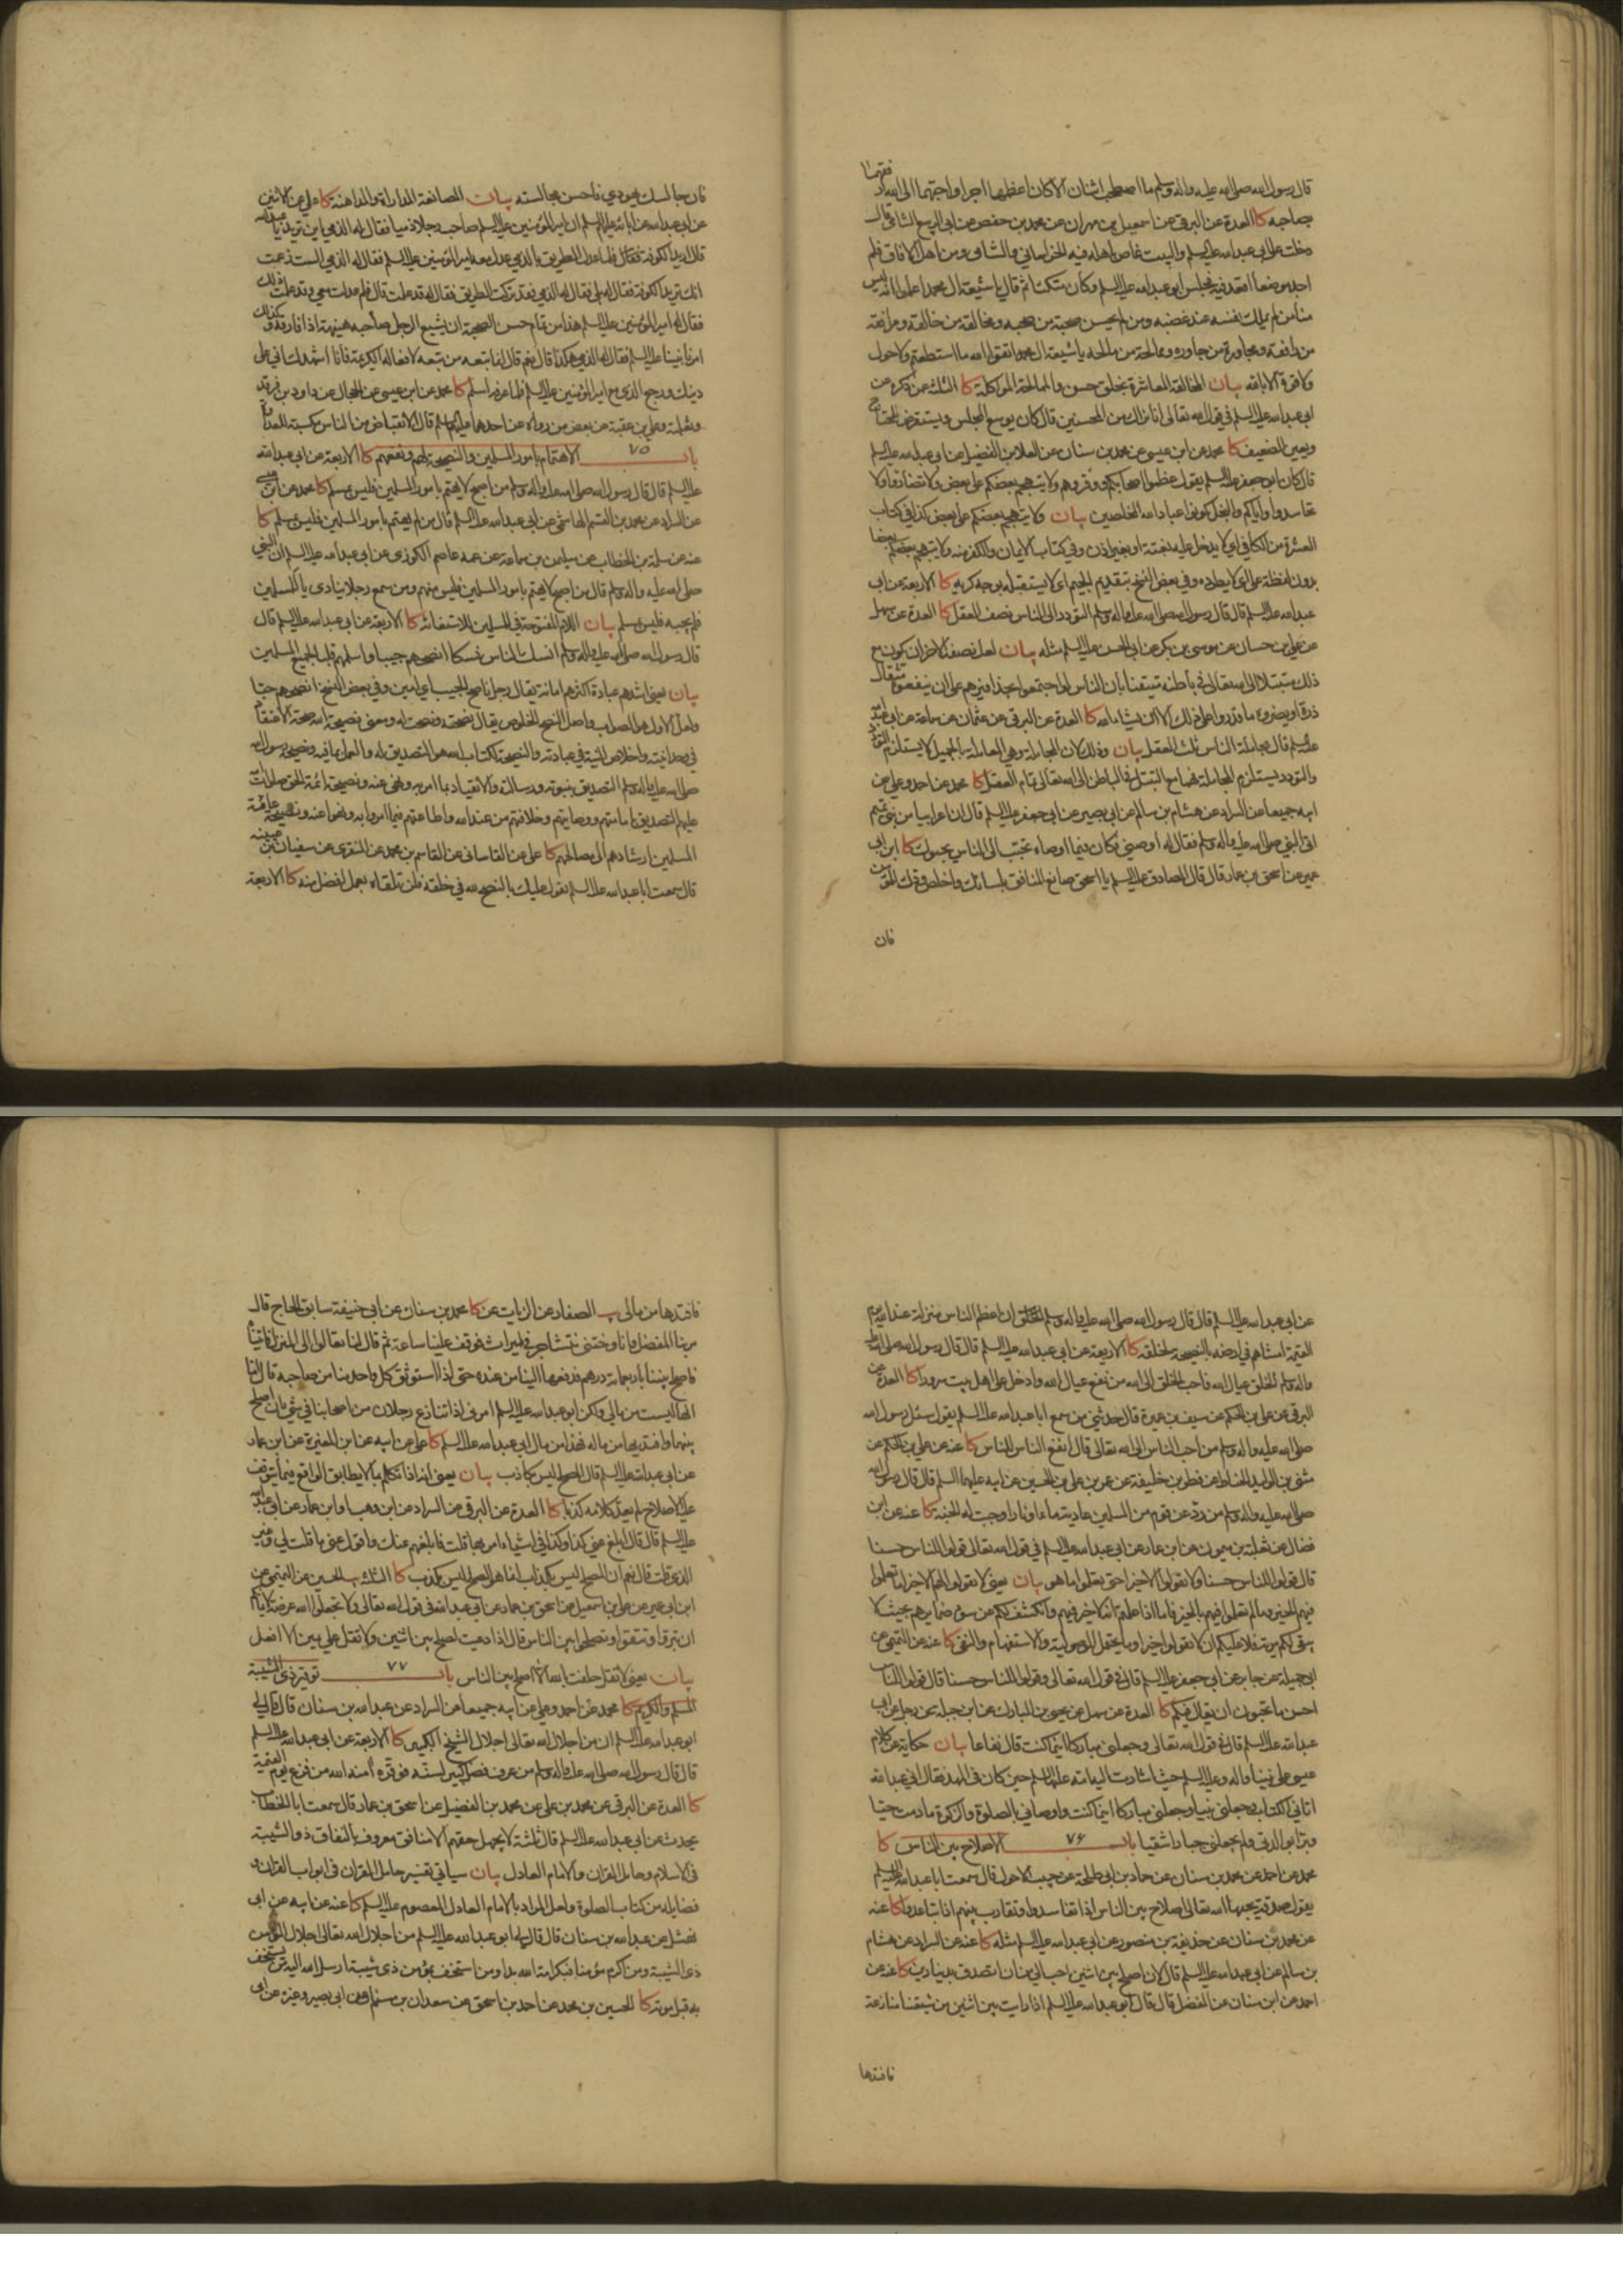 قال رسول الله صلى الله عليه واله وسلم ما اصطحب اثنان الا كان اعظمهما اجرا واحبهما الى الله ارفقهما
بصاحبه كا العدة عن البرقي عن اسمعيل بن مهران عن محمد بن حفص عن ابي الربيع الشامي قال
دخلت على ابي عبدالله عليه السلم والبيت غاص باهله فيه الخراساني والشامي ومن اهل الافاق فلم
اجد موضعا اقعد فيه فجلس ابو عبدالله عليه السلم وكان متكئا ثم قال يا شيعة ال محمد اعلموا انه ليس
منا من لم يملك نفسه عند غضبه ومن لم يحسن صحبة من صحبه ومخالقة من خالقه ومرافقة
من رافقه ومجاورة من جاوره وممالحة من مالحه يا شيعة ال محمد اتقوا الله ما استطعتم ولا حول
ولا قوة الا بالله بيان المخالقة المعاشرة بخلق حسن والممالحة المواكلة كا الثلثة عمن ذكره عن
ابي عبدالله عليه السلم في قول الله تعالى انا نراك من المحسنين قال كان يوسع المجلس ويستقرض للمحتاج
ويعين الضعيف كا محمد عن ابن عيسى عن محمد بن سنان عن العلا بن الفضيل عن ابي عبدالله عليه السلم
قال كان ابو جعفر عليه السلم يقول عظموا اصحابكم ووقروهم ولا يتهجم بعضكم على بعض ولا تضاروا ولا
تحاسدوا واياكم والبخل كونوا عباد الله المخلصين بيان ولا يتهجم بعضكم على بعض كذا في كتاب
العشرة من الكافي اي لا يدخل عليه بغتة او بغير اذن وفي كتاب الايمان والكفر منه ولا يتجهم بعضكم بعضا
بدون لفظة على اي لا يطرده وفي بعض النسخ بتقديم الجيم اي لا يستقبله بوجه كريه كا الاربعة عن ابي
عبدالله عليه السلم قال قال رسول الله صلى الله عليه واله وسلم التودد الى الناس نصف العقل كا العدة عن سهل
عن علي بن حسان عن موسى بن بكر عن ابي الحسن عليه السلم مثله بيان لعل نصفه الاخر ان يكون مع
ذلك متبتلا الى الله تعالى في باطنه متيقنا بان الناس لو اجتمعوا بحذافيرهم على ان ينفعوه مثقال
ذرة او يضروه ما قدروا على ذلك الا ان يشاء الله كا العدة عن البرقي عن عثمان عن سماعة عن ابي عبدالله
عليه السلم قال مجاملة الناس ثلث العقل بيان وذلك لان المجاملة وهي المعاملة بالجميل لا يستلزم التودد
والتودد يستلزم المجاملة فهما مع التبتل في الباطن الى الله تعالى تمام العقل كا محمد عن احمد وعلي عن
ابيه جميعا عن السراد عن هشام بن سالم عن ابي بصير عن ابي جعفر عليه السلم قال ان اعرابيا من بني تميم
اتى النبي صلى الله عليه واله وسلم فقال له اوصني فكان فيما اوصاه تحبب الى الناس يحبوك كا ابن ابي
عمير عن اسحق بن عمار قال قال الصادق عليه السلم يا اسحق صانع المنافق بلسانك واخلص ودك للمؤمن
فان
فان جالسك يهودي فاحسن مجالسته بيان المصانعة المداراة والمداهنة كا علي عن الاثنين
عن ابي عبدالله عن ابائه عليهم السلم ان امير المؤمنين عليه السلم صاحب رجلا ذميا فقال له الذمي اين تريد يا عبدالله
قال اريد الكوفة فلما عدل الطريق بالذمي عدل معه امير المؤمنين عليه السلم فقال له الذمي الست زعمت
انك تريد الكوفة فقال له بلى فقال له الذمي فقد تركت الطريق فقال له قد علمت قال فلم عدلت معي وقد علمت ذلك
فقال له امير المؤمنين عليه السلم هذا من تمام حسن الصحبة ان يشيع الرجل صاحبه هنيهة اذا فارقه وكذلك
امرنا نبينا عليه السلم فقال له الذمي هكذا قال نعم قال انما تبعه من تبعه لافعاله الكريمة فانا اشهدك اني على
دينك ورجع الذمي مع امير المؤمنين عليه السلم فلما عرفه اسلم كا محمد عن ابن عيسى عن الحجال عن داود بن فرقد
وثعلبة وعلي بن عقبة عن بعض من رواه عن احدهما عليهما السلم قال الانقباض من الناس مكسبة للعداوة
باب ٧٥ الاهتمام بامور المسلمين والنصيحة لهم ونفعهم كا الاربعة عن ابي عبدالله
عليه السلم قال قال رسول الله صلى الله عليه واله وسلم من اصبح لا يهتم بامور المسلمين فليس بمسلم كا محمد عن ابن عيسى
عن السراد عن محمد بن القسم الهاشمي عن ابي عبدالله عليه السلم قال من لم يهتم بامور المسلمين فليس بمسلم كا
عنه عن سلمة بن الخطاب عن سليمن بن سماعة عن عمه عاصم الكوزي عن ابي عبدالله عليه السلم ان النبي
صلى الله عليه واله وسلم قال من اصبح لا يهتم بامور المسلمين فليس منهم ومن سمع رجلا ينادي يا للمسلمين
فلم يجبه فليس بمسلم بيان اللام المفتوحة في للمسلمين للاستغاثة كا الاربعة عن ابي عبدالله عليه السلم قال
قال رسول الله صلى الله عليه واله وسلم انسك الناس نسكا انصحهم جيبا واسلمهم قلبا لجميع المسلمين
بيان يعني اشدهم عبادة اكثرهم امانة يقال رجل ناصح الجيب اي امين وفي بعض النسخ انصحهم حبا
ولعل الاول هو الصواب واصل النصح الخلوص يقال نصحته ونصحت له ومعنى نصيحة الله صحة الاعتقاد
في وحدانيته واخلاص النية في عبادته والنصيحة لكتاب الله هو التصديق به والعمل بما فيه ونصيحة رسول الله
صلى الله عليه واله وسلم التصديق بنبوته ورسالته والانقياد لما امر به ونهى عنه ونصيحة ائمة الحق صلوات الله
عليهم التصديق بامامتهم ووصايتهم وخلافتهم من عند الله واطاعتهم فيما امروا به ونهوا عنه ونصيحة عامة
المسلمين ارشادهم الى مصالحهم كا علي عن القاساني عن القاسم بن محمد عن المنقري عن سفيان بن عيينه
قال سمعت ابا عبدالله عليه السلم يقول عليك بالنصح لله في خلقه فلن تلقاه بعمل افضل منه كا الاربعة
عن ابي عبدالله عليه السلم قال قال رسول الله صلى الله عليه واله وسلم ان اعظم الناس منزلة عند الله يوم
القيمة امشاهم في ارضه بالنصيحة لخلقه كا الاربعة عن ابي عبدالله عليه السلم قال قال رسول الله صلى الله عليه
واله وسلم الخلق عيال الله فاحب الخلق الى الله من نفع عيال الله وادخل على اهل بيت سرورا كا العدة عن
البرقي عن علي بن الحكم عن سيف بن عميرة قال حدثني من سمع ابا عبدالله عليه السلم يقول سئل رسول الله
صلى الله عليه واله وسلم من احب الناس الى الله تعالى قال انفع الناس للناس كا عنه عن علي بن الحكم عن
مثنى بن الوليد الحناط عن فطر بن خليفة عن عمر بن علي بن الحسين عن ابيه عليهما السلم قال قال رسول الله
صلى الله عليه واله وسلم من رد عن قوم من المسلمين عادية ماء او نار اوجبت له الجنة كا عنه عن ابن
فضال عن ثعلبة بن ميمون عن ابن عمار عن ابي عبدالله عليه السلم في قول الله تعالى قولوا للناس حسنا
قال قولوا للناس حسنا ولا تقولوا الا خيرا حتى تعلموا ما هو بيان يعني لا تقولوا لهم الا خيرا ما تعلموا
فيهم الخير وما لم تعلموا فيهم الخير فاما اذا علمتم انه لا خير فيهم وانكشف لكم عن سوء ضمائرهم بحيث لا
يبقى لكم مرية فلا عليكم ان لا تقولوا خيرا وما يحتمل الموصولية والاستفهام والنفي كا عنه عن التميمي عن
ابي جميلة عن جابر عن ابي جعفر عليه السلم قال في قول الله تعالى وقولوا للناس حسنا قال قولوا للناس
احسن ما تحبون ان يقال فيكم كا العدة عن سهل عن يحيى بن المبارك عن ابن جبلة عن رجل عن ابي
عبدالله عليه السلم قال في قول الله تعالى وجعلني مباركا اينما كنت قال نفاعا بيان حكاية عن كلام
عيسى على نبينا واله وعليه السلم حيث اشارت اليه امه عليها السلم حين كان في المهد فقال اني عبدالله
اتاني الكتاب وجعلني نبيا وجعلني مباركا اينما كنت واوصاني بالصلوة والزكوة ما دمت حيا
وبرا بوالدتي ولم يجعلني جبارا شقيا باب ٧٦ الاصلاح بين الناس كا
محمد عن احمد عن محمد بن سنان عن حماد بن ابي طلحة عن حبيب الاحول قال سمعت ابا عبدالله عليه السلم
يقول صدقة يحبها الله تعالى اصلاح بين الناس اذا تفاسدوا وتقارب بينهم اذا تباعدوا كا عنه
عن محمد بن سنان عن حذيفة بن منصور عن ابي عبدالله عليه السلم مثله كا عنه عن السراد عن هشام
بن سالم عن ابي عبدالله عليه السلم قال لان اصلح بين اثنين احب الي من ان اتصدق بدينارين كا عنه عن
احمد عن ابن سنان عن المفضل قال قال ابو عبدالله عليه السلم اذا رايت بين اثنين من شيعتنا منازعة
فافتدها
فافتدها من مالي يب الصفار عن الزيات عن كا محمد بن سنان عن ابي حنيفة سابق الحاج قال
مر بنا المفضل وانا وختني نتشاجر في ميراث فوقف علينا ساعة ثم قال لنا تعالوا الى المنزل فاتيناه
فاصلح بيننا باربعمائة درهم فدفعها الينا من عنده حتى اذا استوثق كل واحد منا من صاحبه قال اما
انها ليست من مالي ولكن ابو عبدالله عليه السلم امرني اذا تنازع رجلان من اصحابنا في شيء ان اصلح
بينهما وافتديها من ماله فهذا من مال ابي عبدالله عليه السلم كا علي عن ابيه عن ابن المغيرة عن ابن عمار
عن ابي عبدالله عليه السلم قال المصلح ليس بكاذب بيان يعني انه اذا تكلم بما لا يطابق الواقع فيما يتوقف
عليه الاصلاح لم يعد كلامه كذبا كا العدة عن البرقي عن السراد عن ابن وهب او ابن عمار عن ابي عبدالله
عليه السلم قال قال ابلغ عني كذا وكذا في اشياء امر بها قلت فابلغهم عنك واقول عني ما قلت لي وغير
الذي قلت قال نعم ان المصلح ليس بكذاب انما هو الصلح ليس بكذب كا الثلثة يب الحسين عن التميمي عن
ابن ابي عمير عن علي بن اسمعيل عن اسحق بن عمار عن ابي عبدالله في قول الله تعالى ولا تجعلوا الله عرضة لايمانكم
ان تبروا وتتقوا وتصلحوا بين الناس قال اذا دعيت لصلح بين اثنين ولا تقل علي يمين الا افعل
بيان يعني لا تقل حلفت بالله ان لا اصلح بين الناس باب ٧٧ توقير ذي الشيبة
المسلم والكريم كا محمد عن احمد وعلي عن ابيه جميعا عن السراد عن عبدالله بن سنان قال قال لي
ابو عبدالله عليه السلم ان من اجلال الله تعالى اجلال الشيخ الكبير كا الاربعة عن ابي عبدالله عليه السلم
قال قال رسول الله صلى الله عليه واله وسلم من عرف فضل كبير لسنه فوقره امنه الله من فزع يوم القيمة
كا العدة عن البرقي عن محمد بن علي عن محمد بن الفضيل عن اسحق بن عمار قال سمعت ابا الخطاب
يحدث عن ابي عبدالله عليه السلم قال ثلثة لا يجهل حقهم الا منافق معروف بالنفاق ذو الشيبة
في الاسلام وحامل القران والامام العادل بيان سياتي تفسير حامل القران في ابواب القران و
فضايله من كتاب الصلوة ولعل المراد بالامام العادل المعصوم عليه السلم كا عنه عن ابيه عن ابي
نهشل عن عبدالله بن سنان قال قال لي ابو عبدالله عليه السلم من اجلال الله تعالى اجلال المؤمن
ذي الشيبة ومن اكرم مؤمنا فبكرامة الله بدا ومن استخف بمؤمن ذي شيبة ارسل الله اليه من يستخف
به قبل موته كا الحسين بن محمد عن احمد بن اسحق عن سعدان بن مسلم عن ابي بصير وغيره عن ابي